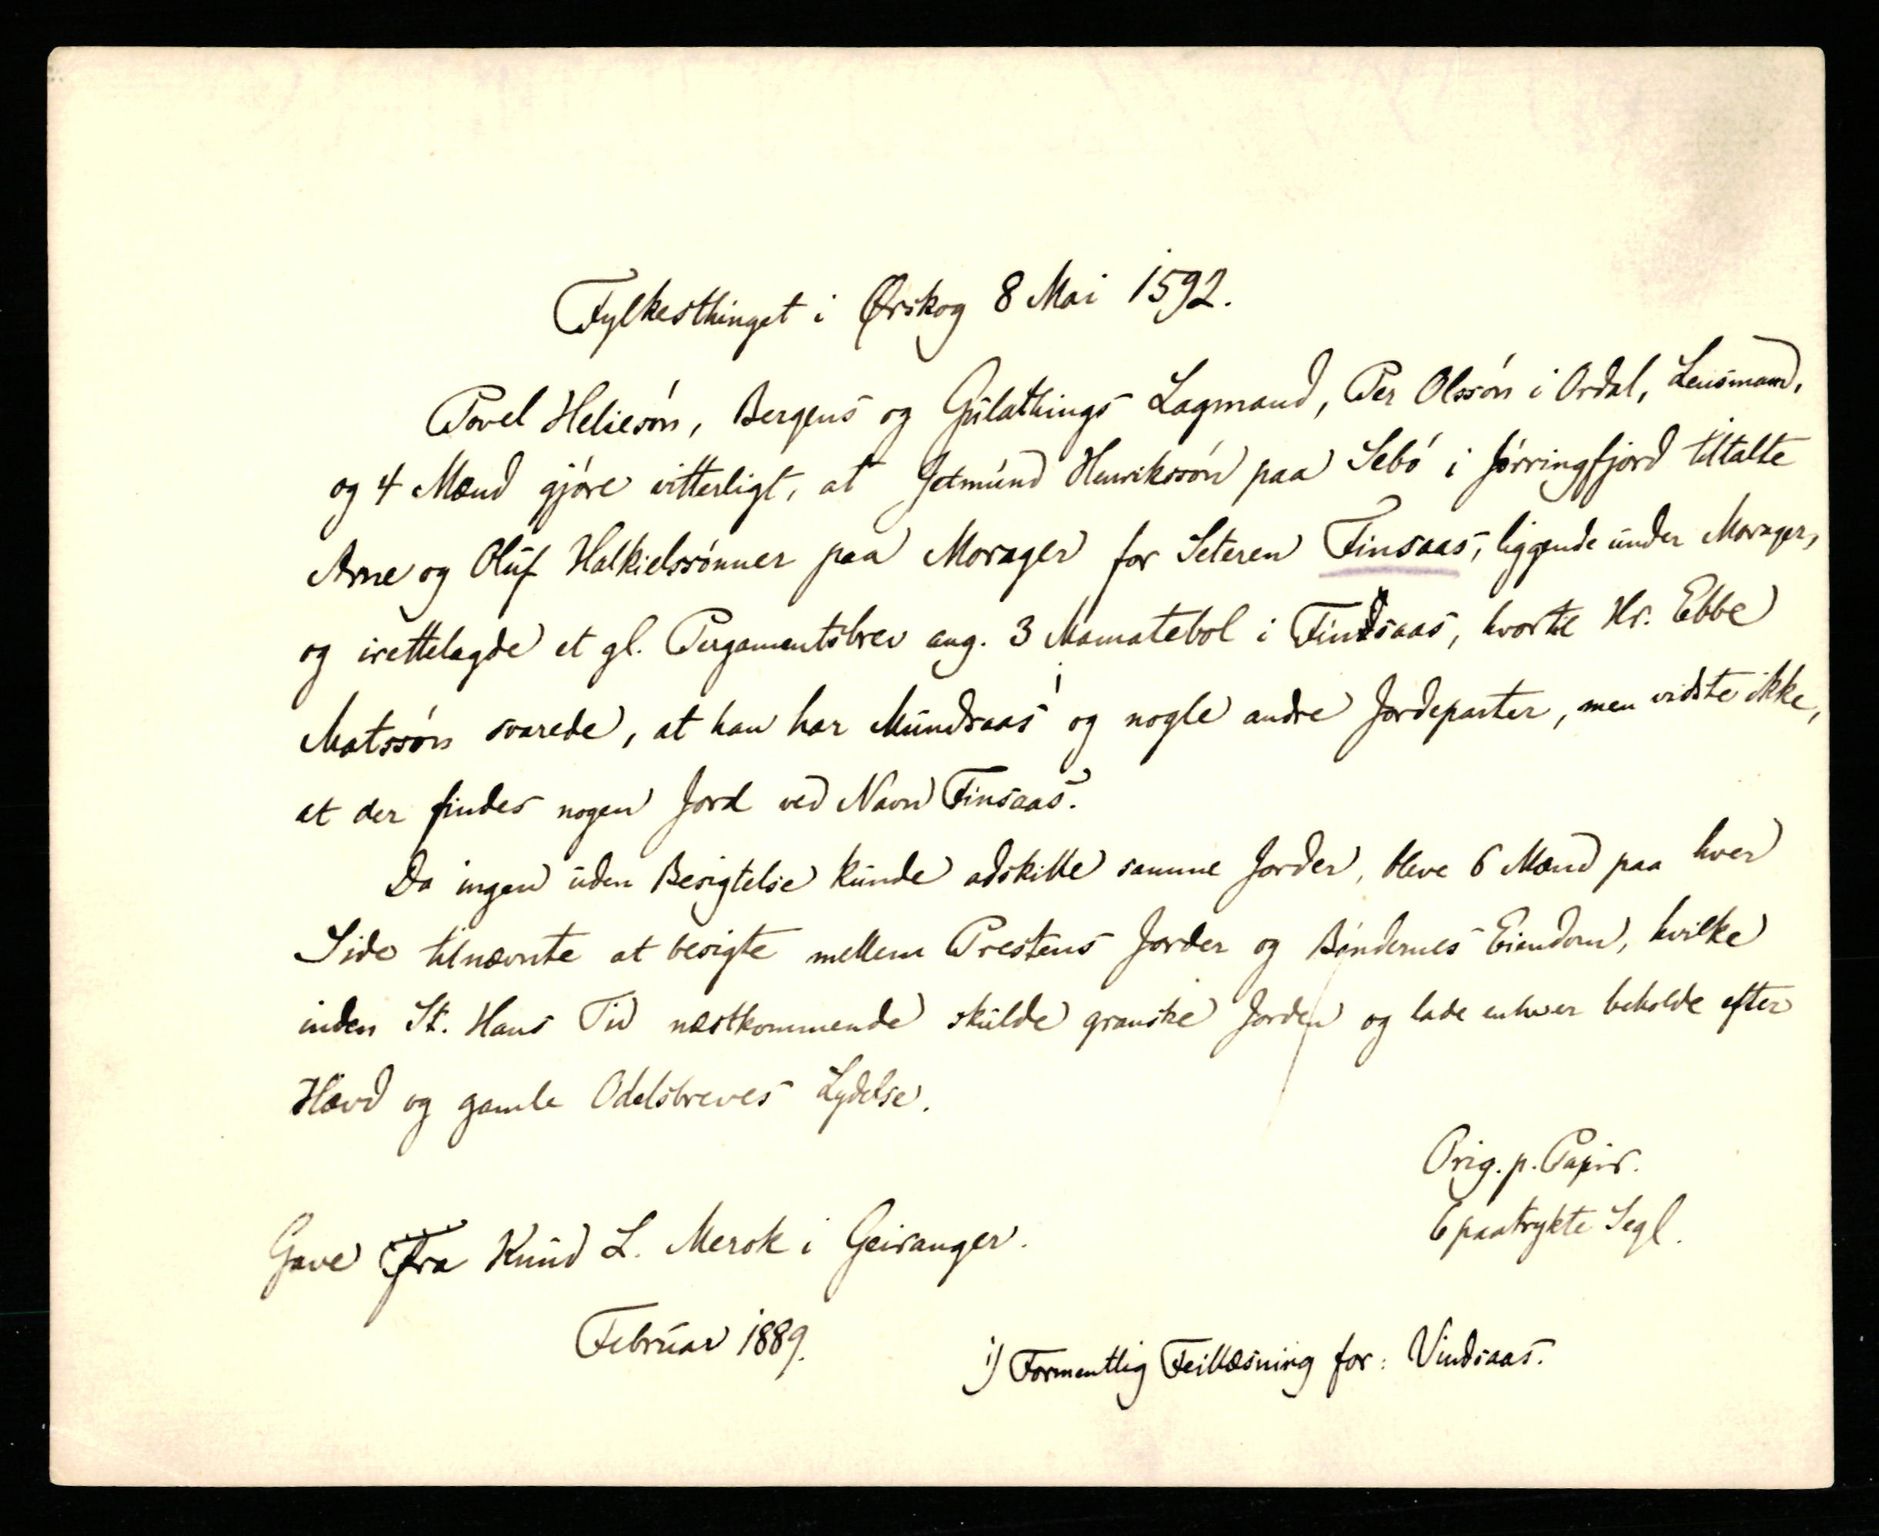 Fylkesthinget i Ørskog 8 Mai 1592.
Povel Heliesón, Bergens og Gulathings Lagmand, Per Olssón i Ordal, Lensmand,
og 4 Mænd gjóre vitterligt, at Jetmund Henrikssón paa Sebó i Jórringfjord tiltalte
Arne og Oluf Halkielssónner paa Morager for Seteren Finsaas, liggende under Morager,
og irettelagde et gl. Pergamentsbrev ang. 3 Mamatebol i Findsaas, hvortil Hr. Ebbe
Matssón svarede, at han har Mundsaas¹ og nogle andre Jordeparter, men vidste ikke,
at der findes nogen Jord ved Navn Finsaas.
Da ingen uden Besigtelse kunde adskille samme Jorder, bleve 6 Mænd paa hver
Side tilnævnte at besigte mellem Prestens Jorder og Bóndernes Eiendom, hvilke
inden St. Hans Tid næstkommende skulde granske Jorden og lade enhver beholde efter
Hævd og gamle Odelsbreves Lydelse.
Orig. p. Papir.
6 paatrykte Segl.
Gave Fra Knud L. Merok i Geiranger.
Februar 1889.
1) Formentlig Feillæsning for: Vindsaas.